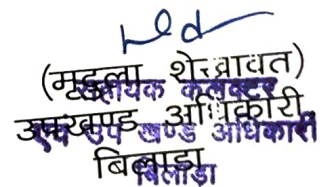 (मृदुला शेखावत)
सहायक कलक्टर
उपखण्ड अधिकारी,
एवं उप खण्ड अधिकारी
बिलाड़ा
बिलाड़ा